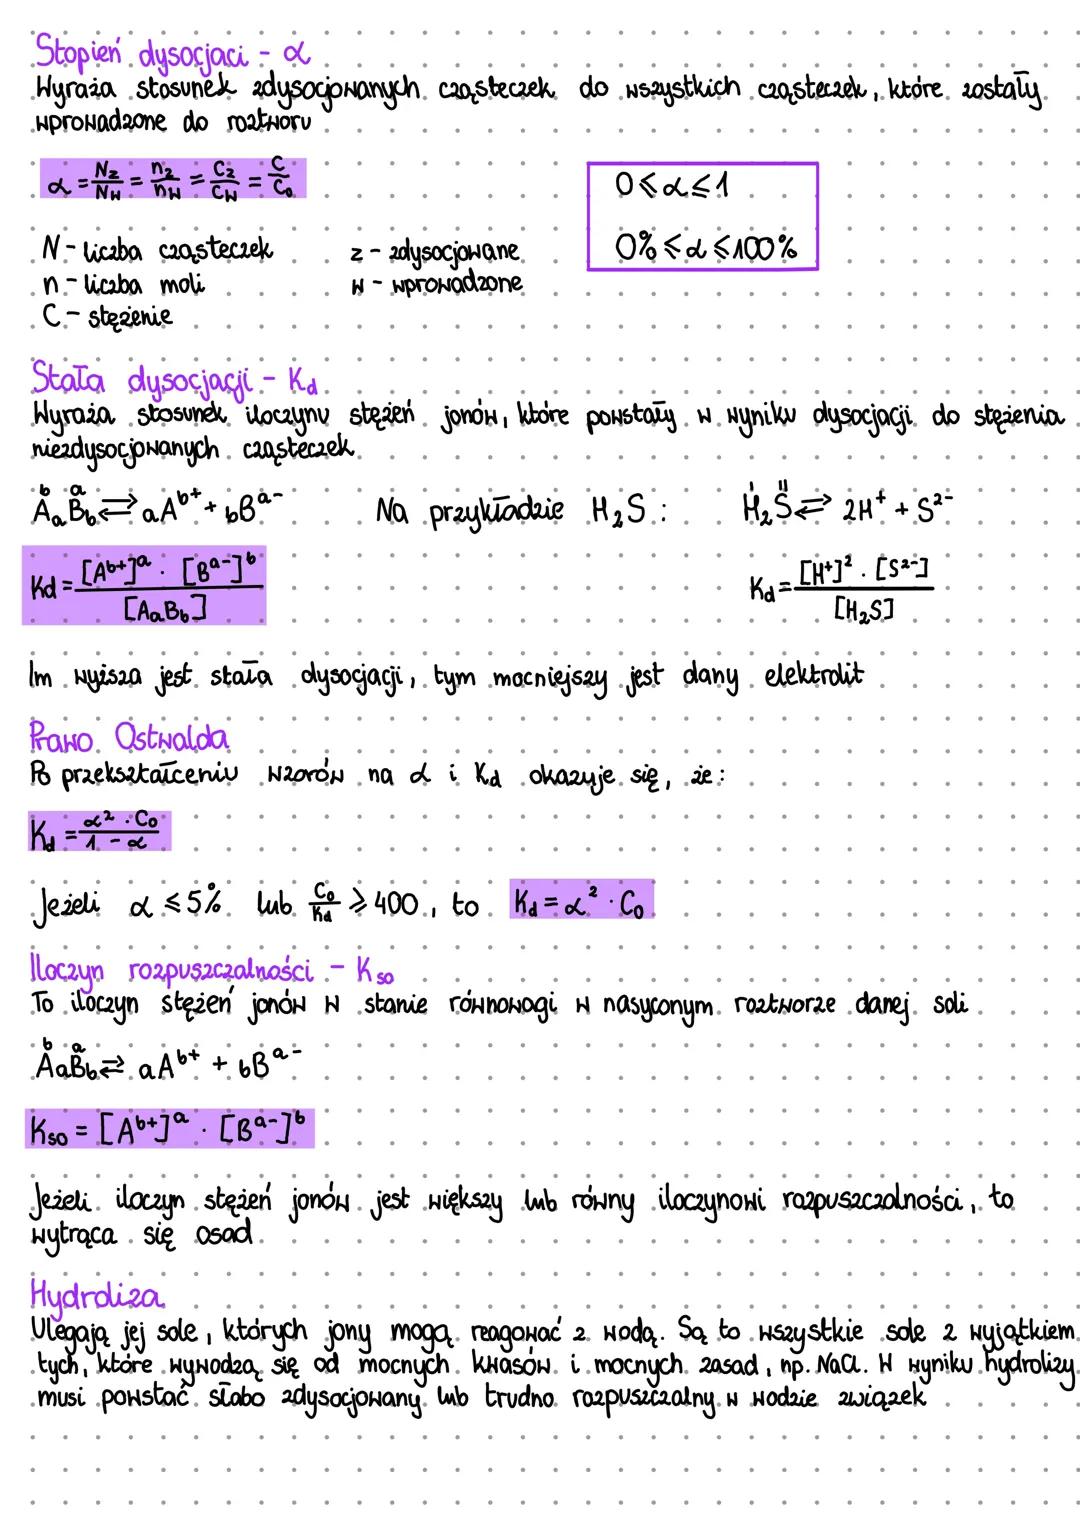 Stopień dysocjaci - α
Wyraża stosunek zdysocjowanych cząsteczek do wszystkich cząsteczek, które zostały
wprowadzone do roztworu
α = Nz/Nw = nz/nw = Cz/Cw = C/C₀
0 ⩽ α ⩽ 1
0% ⩽ α ⩽ 100%
N - liczba cząsteczek z - zdysocjowane
n - liczba moli w - wprowadzone
C - stężenie
Stała dysocjacji - Kd
Wyraża stosunek iloczynu stężeń jonów, które powstały w wyniku dysocjacji do stężenia
niezdysocjowanych cząsteczek
AₐB_b ⇄ aA^b+ + bB^a- Na przykładzie H₂S: H₂S ⇄ 2H⁺ + S²⁻
Kd = [A^b+]^a · [B^a-]^b / [AₐB_b] Kd = [H⁺]² · [S²⁻] / [H₂S]
Im wyższa jest stała dysocjacji, tym mocniejszy jest dany elektrolit
Prawo Ostwalda
Po przekształceniu wzorów na α i Kd okazuje się, że:
Kd = α² · C₀ / 1 - α
Jeżeli α ⩽ 5% lub C₀/Kd ⩾ 400, to Kd = α² · C₀
Iloczyn rozpuszczalności - Kso
To iloczyn stężeń jonów w stanie równowagi w nasyconym roztworze danej soli
AₐB_b ⇄ aA^b+ + bB^a-
Kso = [A^b+]^a · [B^a-]^b
Jeżeli iloczyn stężeń jonów jest większy lub równy iloczynowi rozpuszczalności, to
wytrąca się osad
Hydroliza
Ulegają jej sole, których jony mogą reagować z wodą. Są to wszystkie sole z wyjątkiem
tych, które wywodzą się od mocnych kwasów i mocnych zasad, np. NaCl. W wyniku hydrolizy
musi powstać słabo zdysocjowany lub trudno rozpuszczalny w wodzie związek